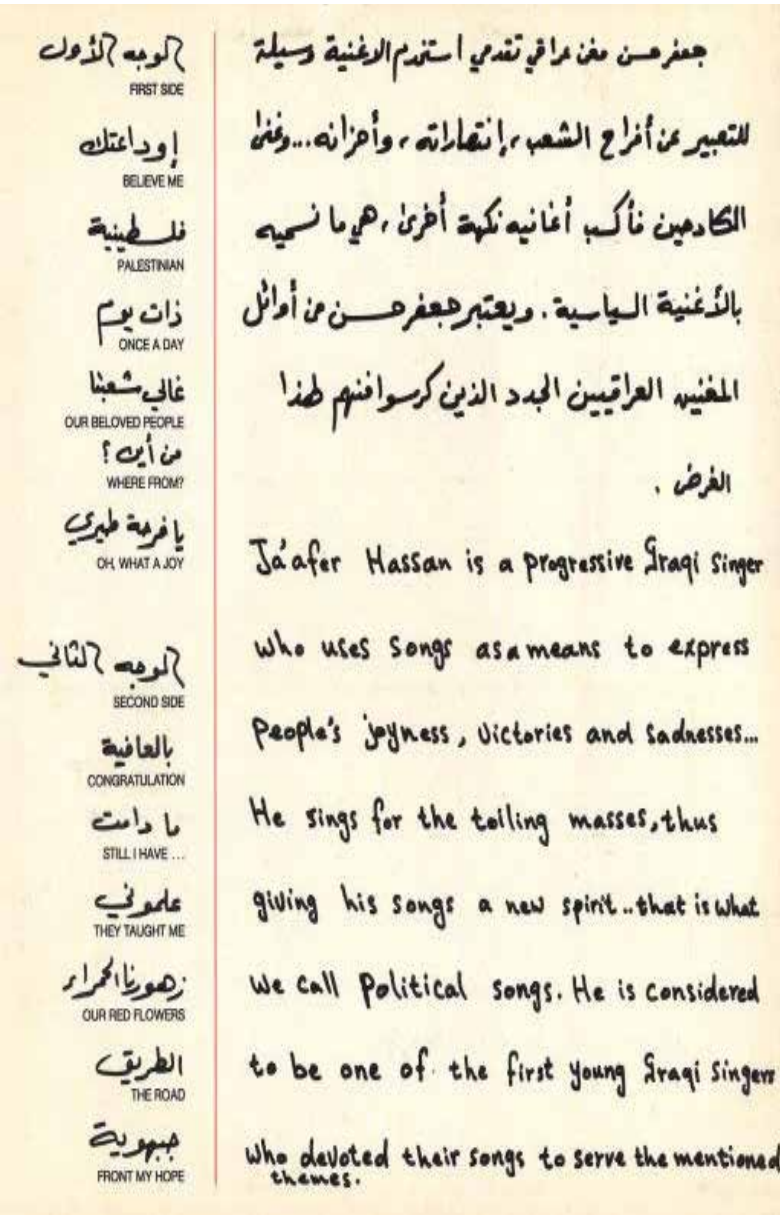 الوجه الأول
FIRST SIDE
إوداعتك
BELIEVE ME
فلسطينية
PALESTINIAN
ذات يوم
ONCE A DAY
غالي شعبنا
OUR BELOVED PEOPLE
من أين؟
WHERE FROM?
يا فرحة طيري
OH, WHAT A JOY
الوجه الثاني
SECOND SIDE
بالعافية
CONGRATULATION
ما دامت
STILL I HAVE ...
علموني
THEY TAUGHT ME
زهورنا الحمراء
OUR RED FLOWERS
الطريق
THE ROAD
جبهوية
FRONT MY HOPE
جعفر حسن مغن عراقي تقدمي استخدم الاغنية وسيلة
للتعبير عن أفراح الشعب، إنتصاراته، وأحزانه...وغنى
الكادحين فأكسب أغانيه نكهة أخرى، هي ما نسميه
بالأغنية السياسية. ويعتبر جعفر حسن من أوائل
المغنين العراقيين الجدد الذين كرسوا فنهم لهذا
الغرض .
Ja'afer Hassan is a progressive Iraqi singer
who uses songs as a means to express
people's joyness, victories and sadnesses...
He sings for the toiling masses, thus
giving his songs a new spirit..that is what
we call Political songs. He is considered
to be one of the first young Iraqi singers
who devoted their songs to serve the mentioned
themes.